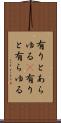 有りとあら
ゆる 有り
と有らゆる